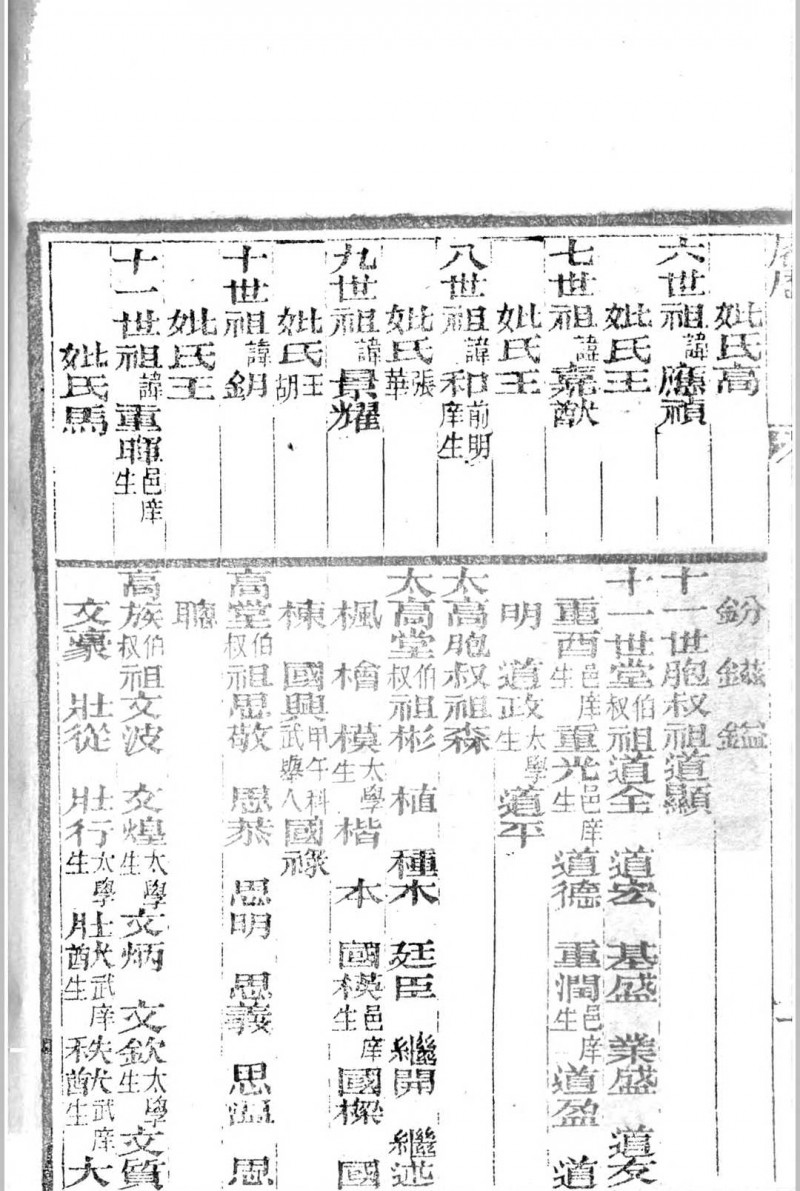 妣氏高
六世祖諱應禎
妣氏王
七世祖諱嘉猷
妣氏王
八世祖諱和前明庠生
妣氏張華
九世祖諱景耀
妣氏王胡
十世祖諱鈅
妣氏王
十一世祖諱重暉邑庠生
妣氏馬
鈖 鎡 鑑
十一世胞叔祖道顯
十一世堂伯叔祖道全 道宏 基盛 業盛 道友
重酉邑庠生 重光邑庠生 道德 重潤邑庠生 道盈 道
明 道政太學生 道平
太高胞叔祖森
太高堂伯叔祖彬 植 種木 廷臣 繼開 繼述
楓 檜 模太學生 楷 本 國模邑庠生 國樑 國
棟 國興甲午科武舉人 國祿
高堂伯叔祖思敬 思恭 思明 思義 思溫 思
聰
高族伯叔祖文波 文煌太學生 文炳 文欽太學生 文質
文豪 壯從 壯行太學生 武庠生 武庠生 大